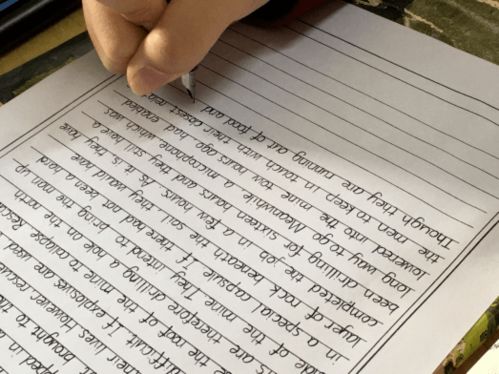 brought to the
lives. However rescue
difficult. If explosives are used
the roof of the mine to collapse. Rescu
are therefore drilling a hole on the north
ide of the mine. They intend to bring the men up
in a special capsule. If there had not been a hard
layer of rock beneath the soil they would have
completed the job in a few hours. As it is they have
been drilling for sixteen hours and they still have a
long way to go. Meanwhile a microphone which was
lowered into the mine tow hours ago had enabled
the men to keep in touch with their cosest
Though they are running out of food and